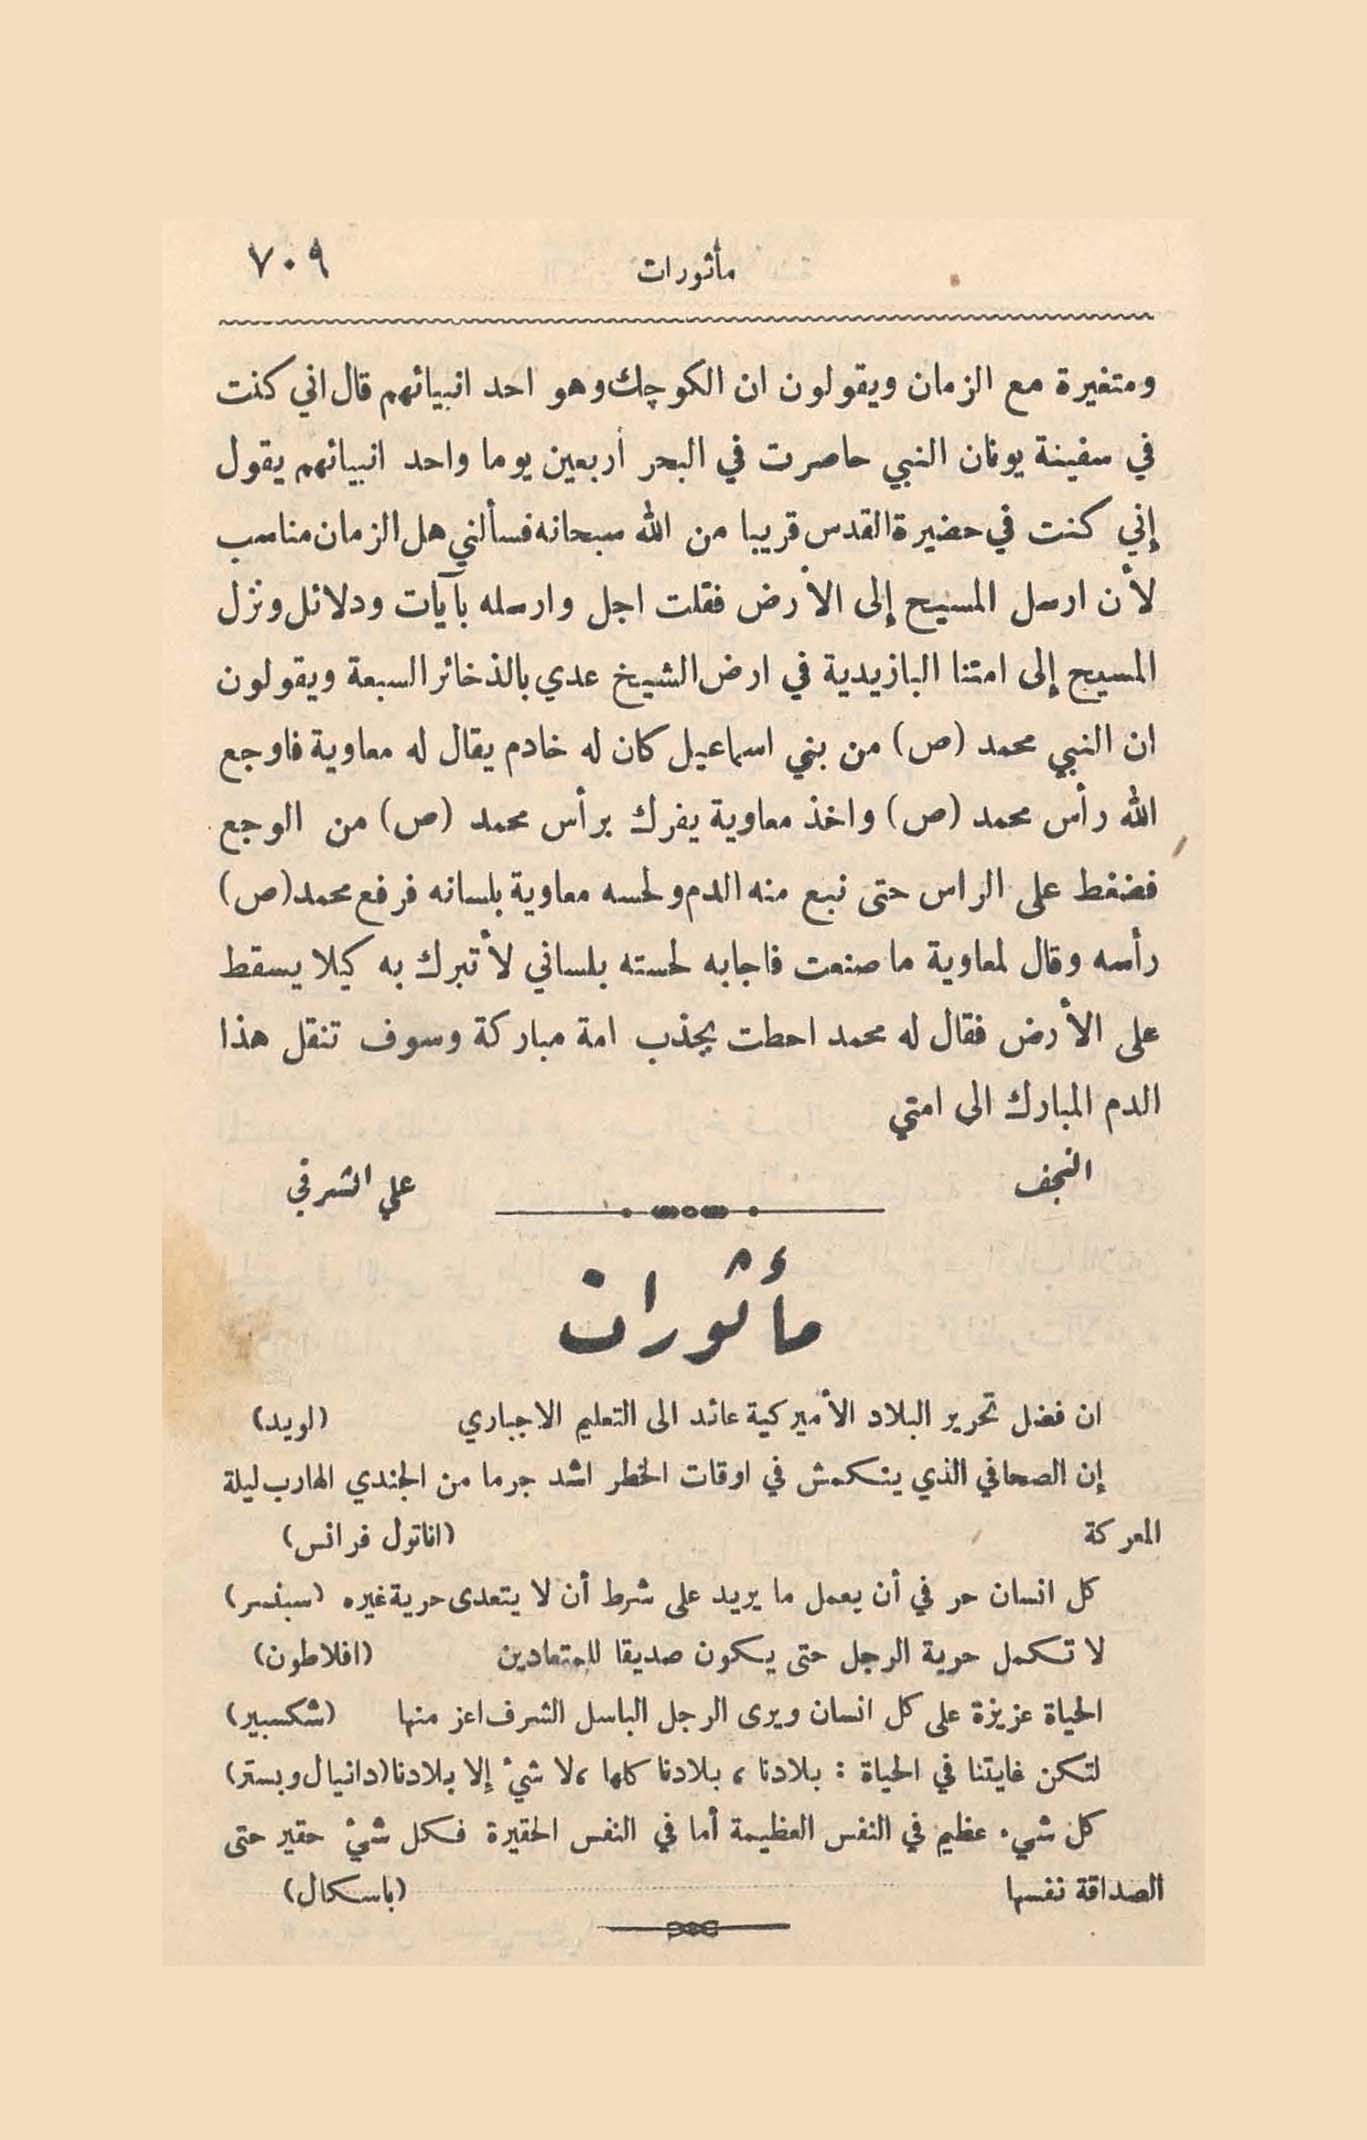 مأثورات ٧٠٩
ومتغيرة مع الزمان ويقولون ان الكوچك وهو احد انبيائهم قال اني كنت
في سفينة يونان النبي حاصرت في البحر أربعين يوما واحد انبيائهم يقول
إني كنت في حضيرة القدس قريبا من الله سبحانه فسألني هل الزمان مناسب
لأن ارسل المسيح إلى الأرض فقلت اجل وارسله بآيات ودلائل ونزل
المسيح إلى امتنا اليازيدية في ارض الشيخ عدي بالذخائر السبعة ويقولون
ان النبي محمد (ص) من بني اسماعيل كان له خادم يقال له معاوية فاوجع
الله رأس محمد (ص) واخذ معاوية يفرك برأس محمد (ص) من الوجع
فضغط على الراس حتى نبع منه الدم ولحسه معاوية بلسانه فرفع محمد (ص)
رأسه وقال لمعاوية ما صنعت فاجابه لحسته بلساني لأتبرك به كيلا يسقط
على الأرض فقال له محمد احطت بجذب امة مباركة وسوف تنقل هذا
الدم المبارك الى امتي
النجف علي الشرقي
مأثورات
ان فضل تحرير البلاد الأميركية عائد الى التعليم الاجباري (لويد)
إن الصحافي الذي ينكمش في اوقات الخطر اشد جرما من الجندي الهارب ليلة
المعركة (اناتول فرانس)
كل انسان حر في أن يعمل ما يريد على شرط أن لا يتعدى حرية غيره (سبنسر)
لا تكمل حرية الرجل حتى يكون صديقا للمتعادين (افلاطون)
الحياة عزيزة على كل انسان ويرى الرجل الباسل الشرف اعز منها (شكسبير)
لتكن غايتنا في الحياة : بلادنا، بلادنا كلها، لا شيء إلا بلادنا (دانيال وبستر)
كل شيء عظيم في النفس العظيمة أما في النفس الحقيرة فكل شيء حقير حتى
الصداقة نفسها (باسكال)